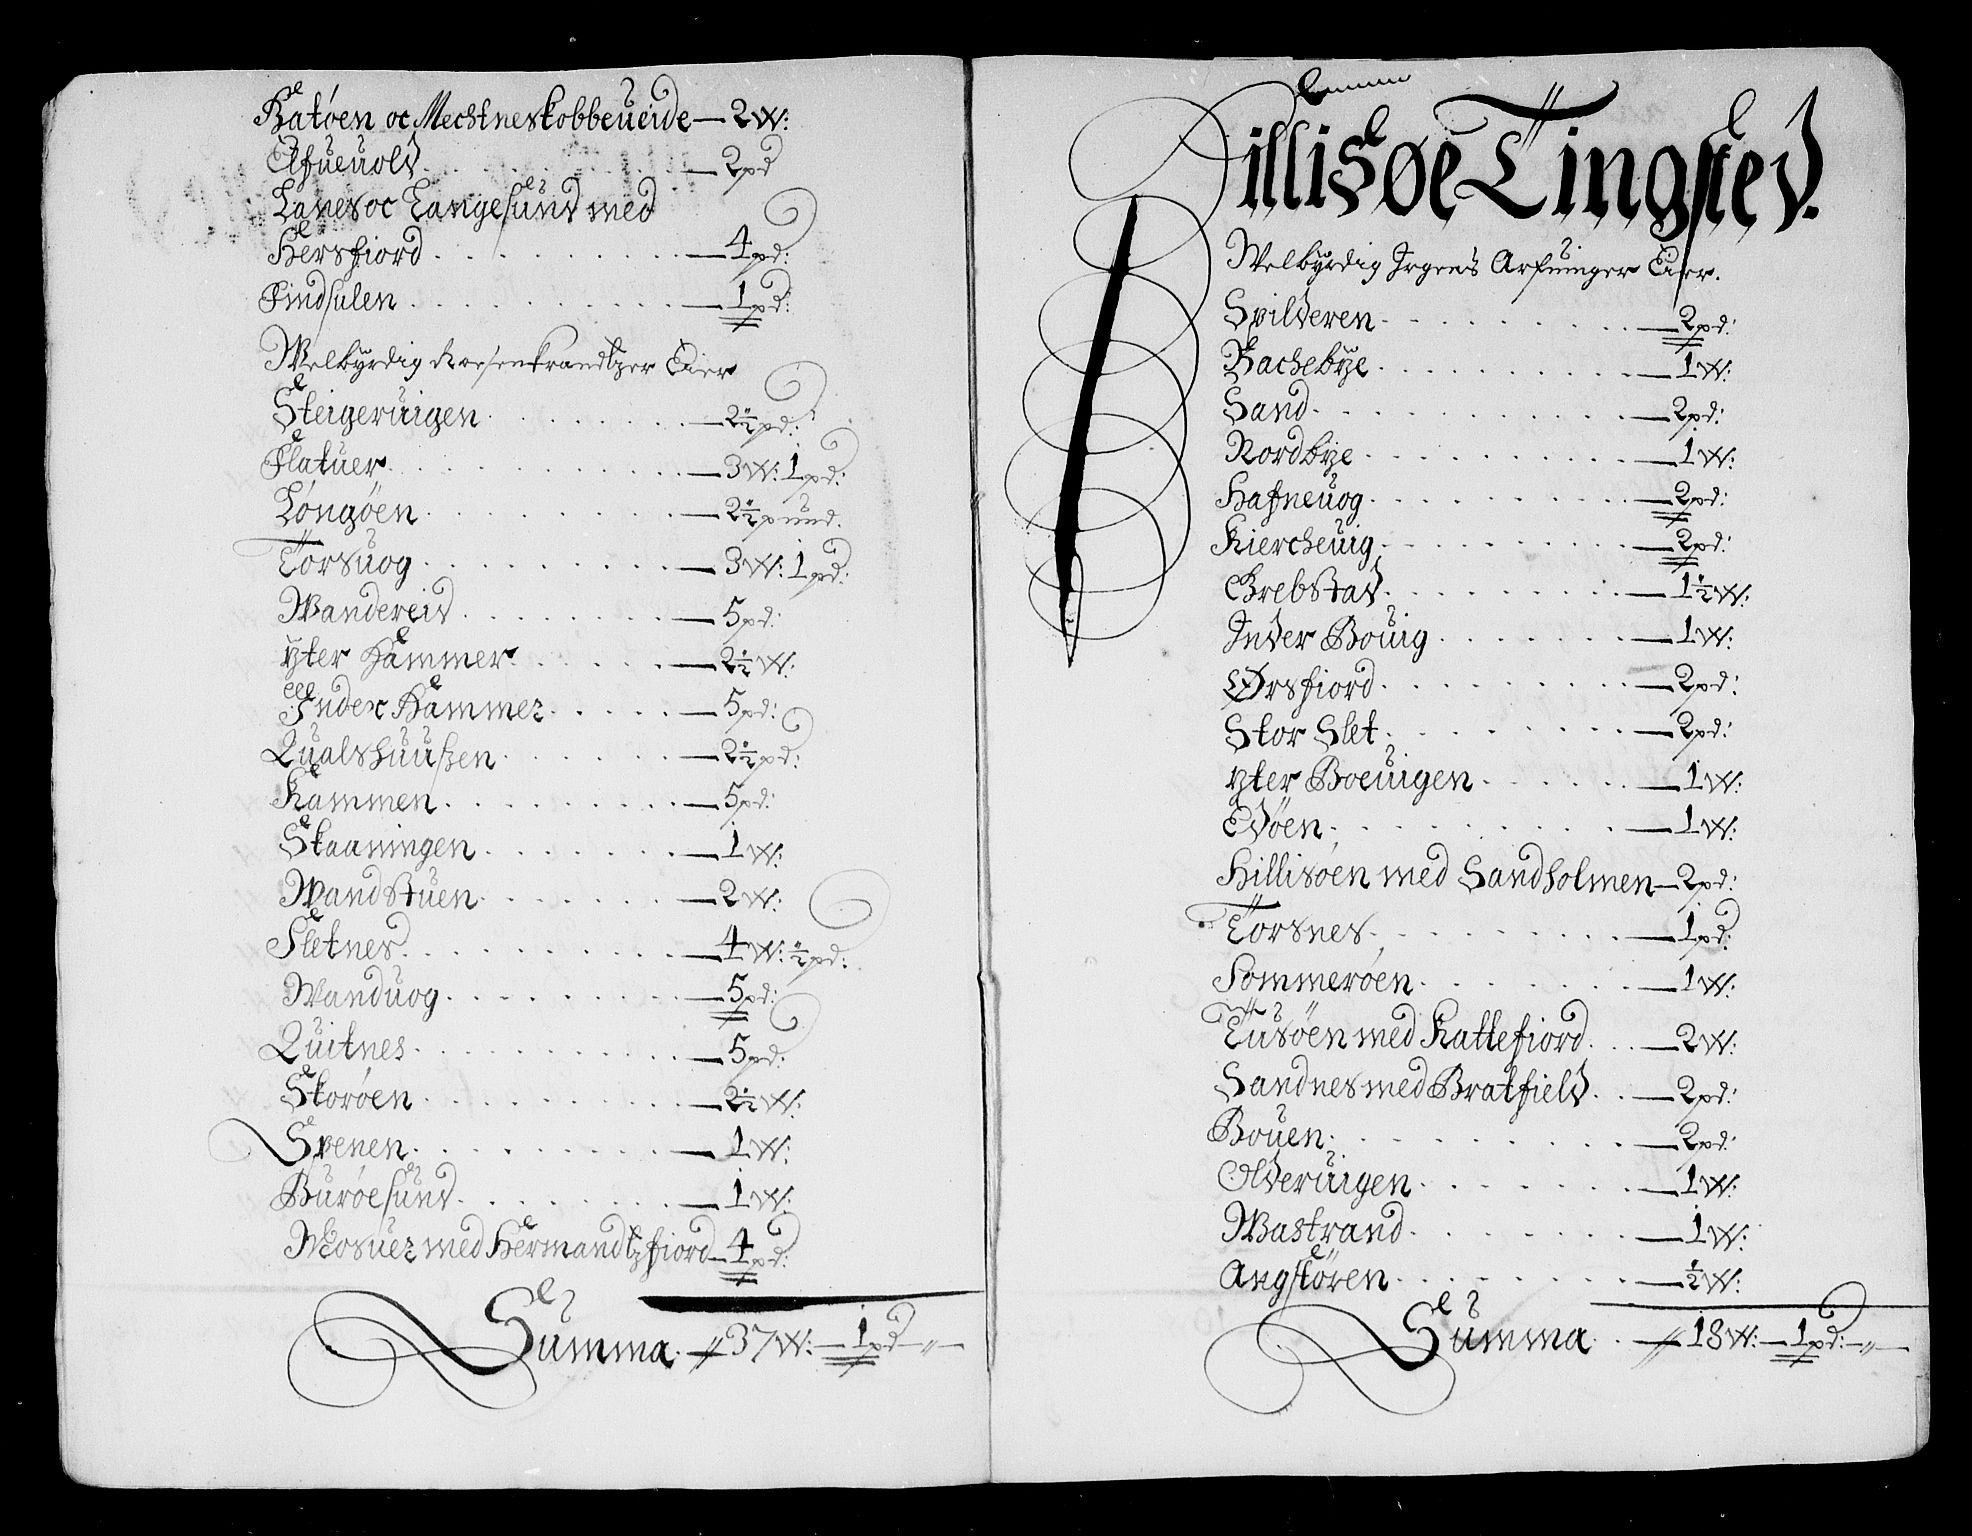 Batøen oc Mechtneskobbeueide — 2 W:
Elfueuold — 2 pd
Lanes oc Langesund med
Hersfiord — 4 pd:
Findsulen — 1 pd:
Welbyrdig Rosenkrandtzer Eier
Steigeruigen — 2½ pd:
Flatuer — 3 W: 1 pd:
Løngøen — 2½ pund.
Torsuog — 3 W: 1 pd:
Wandereid — 5 pd:
Yter Hammer — 2½ W:
Inder Hammer — 5 pd:
Qualshuußen — 2½ pd:
Kammen — 5 pd:
Skaaningen — 1 W:
Wandstuen — 2 W:
Sletnes — 4 W: ½ pd:
Wanduog — 5 pd:
Quitnes — 5 pd:
Skorøen — 2½ W:
Spenen — 1 W:
Burøesund — 1 W:
Mosuer med Hermandtzfiord — 4 pd:
Summa — 37 W: — 1 pd — " —
Hillisøe Tingsted.
Welbyrdig Irgens Arfuinger Eier.
Spilderen — 2 pd:
Bachebye — 1 W:
Sand — 2 pd:
Nordbye — 1 W:
Hafneuog — 2 pd:
Kiercheuig — 2 pd:
Grebstad — 1½ W:
Inder Bouig — 1 W:
Ørsfiord — 2 pd:
Stor Slet — 2 pd:
Yter Boeuigen — 1 W:
Edøen — 1 W:
Hillisøen med Sandholmen — 2 pd:
Torsnes — 1 pd:
Sommerøen — 1 W:
Tusøen med Kattefiord — 2 W:
Sandnes med Bratfield — 2 pd:
Bouen — 2 pd:
Olderuigen — 1 W:
Wastrand — 1 W:
Angstøren — ½ W:
Summa — 18 W: — 1 pd: — " —